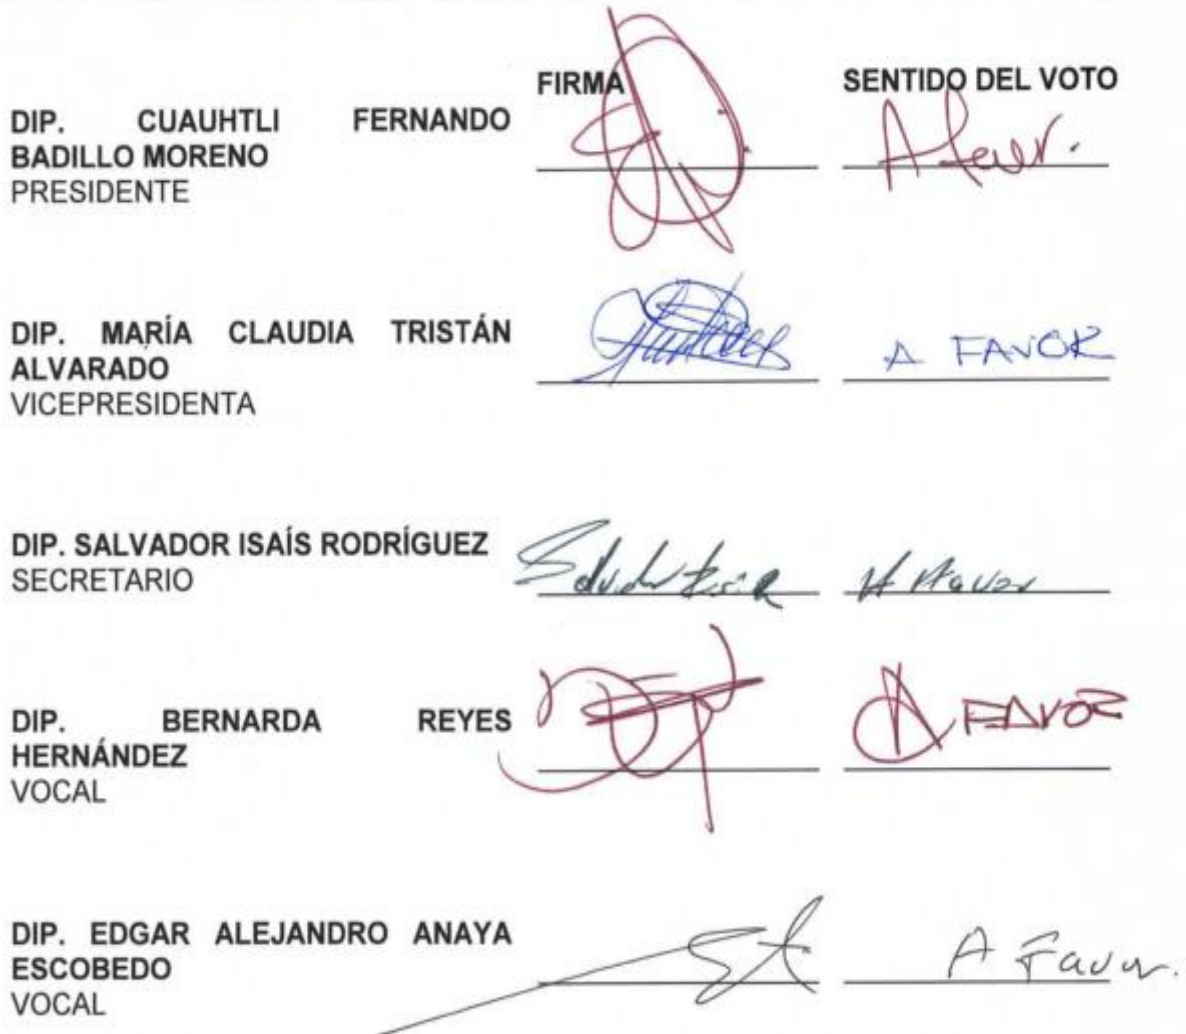 FIRMA SENTIDO DEL VOTO
DIP. CUAUHTLI FERNANDO
BADILLO MORENO
PRESIDENTE
A favor.
DIP. MARÍA CLAUDIA TRISTÁN
ALVARADO
VICEPRESIDENTA
A FAVOR
DIP. SALVADOR ISAÍS RODRÍGUEZ
SECRETARIO
A Favor
DIP. BERNARDA REYES
HERNÁNDEZ
VOCAL
A FAVOR
DIP. EDGAR ALEJANDRO ANAYA
ESCOBEDO
VOCAL
A Favor.